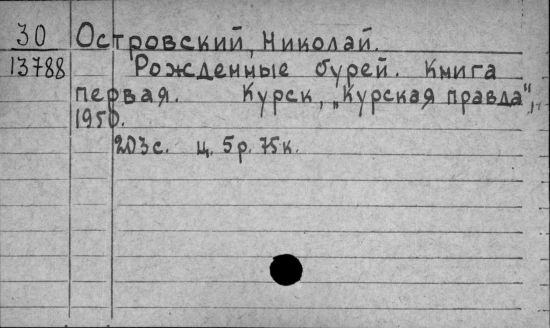 30 Островский, Николай.
13788 Рожденные бурей. Книга
первая. Курск, „Курская правда",
1950.
203с. ц. 5р. 75к.